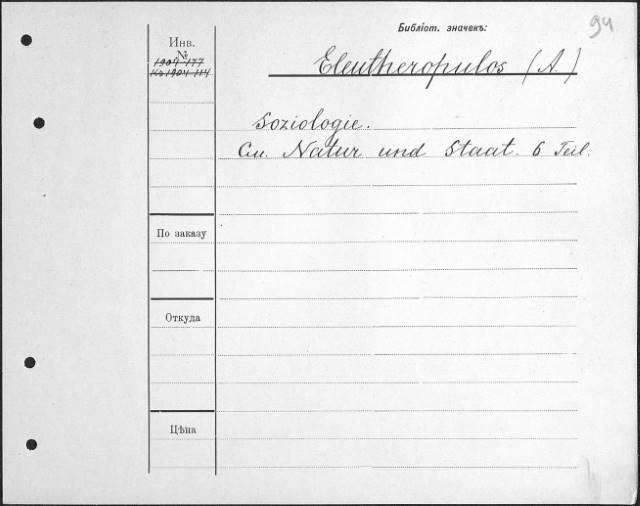 94
Библіот. значекъ:
Инв.
№
1904 177
Кз 1904 114
Eleutheropulos (A.)
Soziologie.
См. Natur und Staat. 6 Teil.
По заказу
Откуда
Цѣна